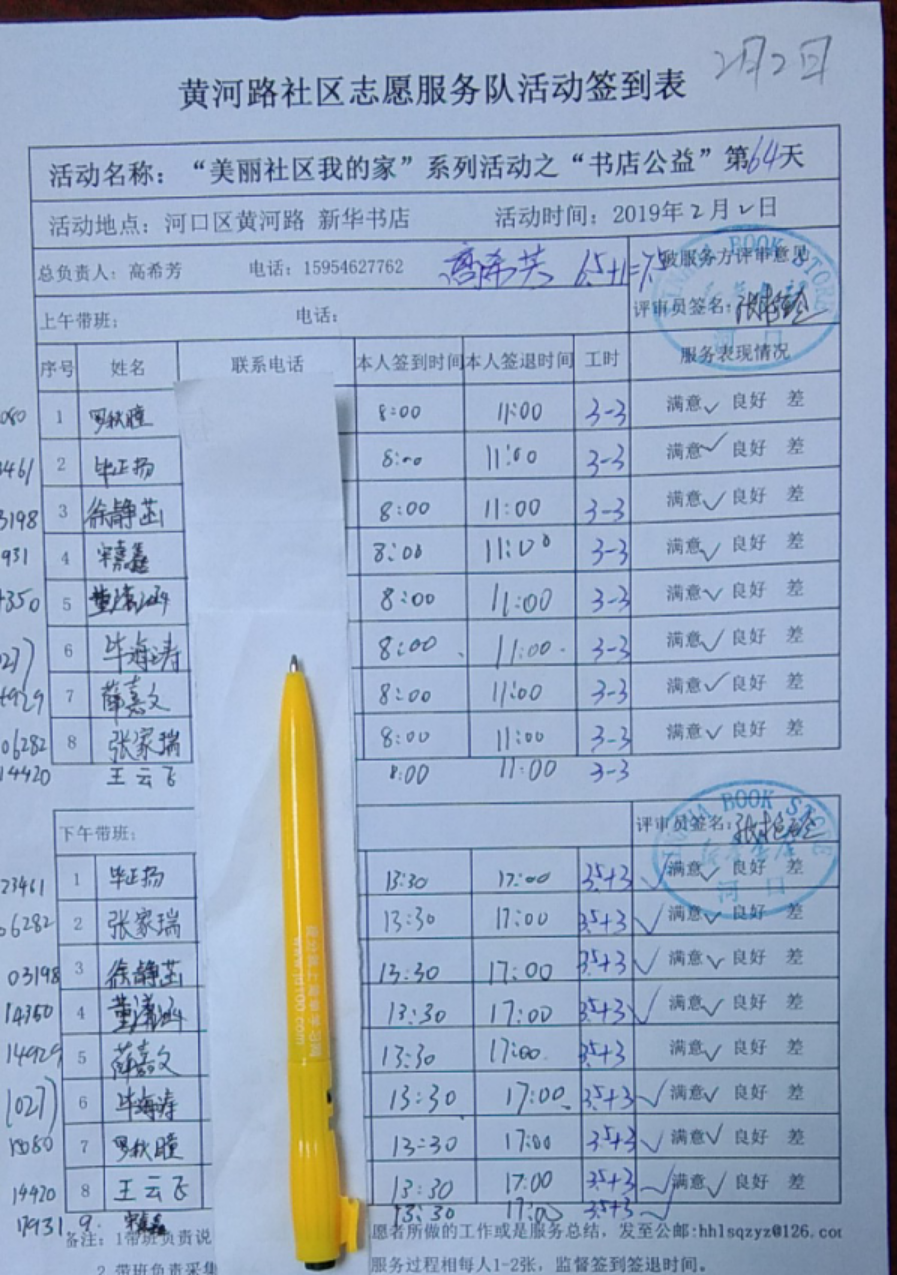 2月2日
黄河路社区志愿服务队活动签到表
活动名称：“美丽社区我的家”系列活动之“书店公益”第64天
活动地点：河口区黄河路 新华书店 活动时间：2019年2月2日
总负责人：高希芳 电话：15954627762 高希芳 6.5+1=7.5 被服务方评审意见
上午带班： 电话： 评审员签名：
XINHUA BOOK STORE
河口
序号 姓名 联系电话 本人签到时间 本人签退时间 工时 服务表现情况
080 1 罗秋瞳 8:00 11:00 3-3 满意✓ 良好 差
3461 2 毕正扬 8:00 11:00 3-3 满意✓ 良好 差
3198 3 徐静茁 8:00 11:00 3-3 满意✓ 良好 差
931 4 宋嘉鑫 8:00 11:00 3-3 满意✓ 良好 差
4350 5 董潇涵 8:00 11:00 3-3 满意✓ 良好 差
027) 6 毕海涛 8:00 11:00 3-3 满意✓ 良好 差
4929 7 薛嘉文 8:00 11:00 3-3 满意✓ 良好 差
06282 8 张家瑞 8:00 11:00 3-3 满意✓ 良好 差
14420 王云飞 8:00 11:00 3-3
下午带班： 评审员签名：
XINHUA BOOK STORE
新华书店
河口
23461 1 毕正扬 13:30 17:00 3.5+3 ✓ 满意✓ 良好 差
06282 2 张家瑞 13:30 17:00 3.5+3 ✓ 满意✓ 良好 差
03198 3 徐静茁 13:30 17:00 3.5+3 ✓ 满意✓ 良好 差
14350 4 董潇涵 13:30 17:00 3.5+3 ✓ 满意✓ 良好 差
14929 5 薛嘉文 13:30 17:00 3.5+3 满意✓ 良好 差
(027) 6 毕海涛 13:30 17:00 3.5+3 ✓ 满意✓ 良好 差
18080 7 罗秋瞳 13:30 17:00 3.5+3 ✓ 满意✓ 良好 差
14420 8 王云飞 13:30 17:00 3.5+3 ✓ 满意✓ 良好 差
17931 9. 宋嘉鑫 13:30 17:00 3.5+3 ✓
备注：1带班负责说 愿者所做的工作或是服务总结，发至公邮:hhlsqzyz@126.com
2 带班负责采集 服务过程相每人1-2张，监督签到签退时间。
www.jd100.com